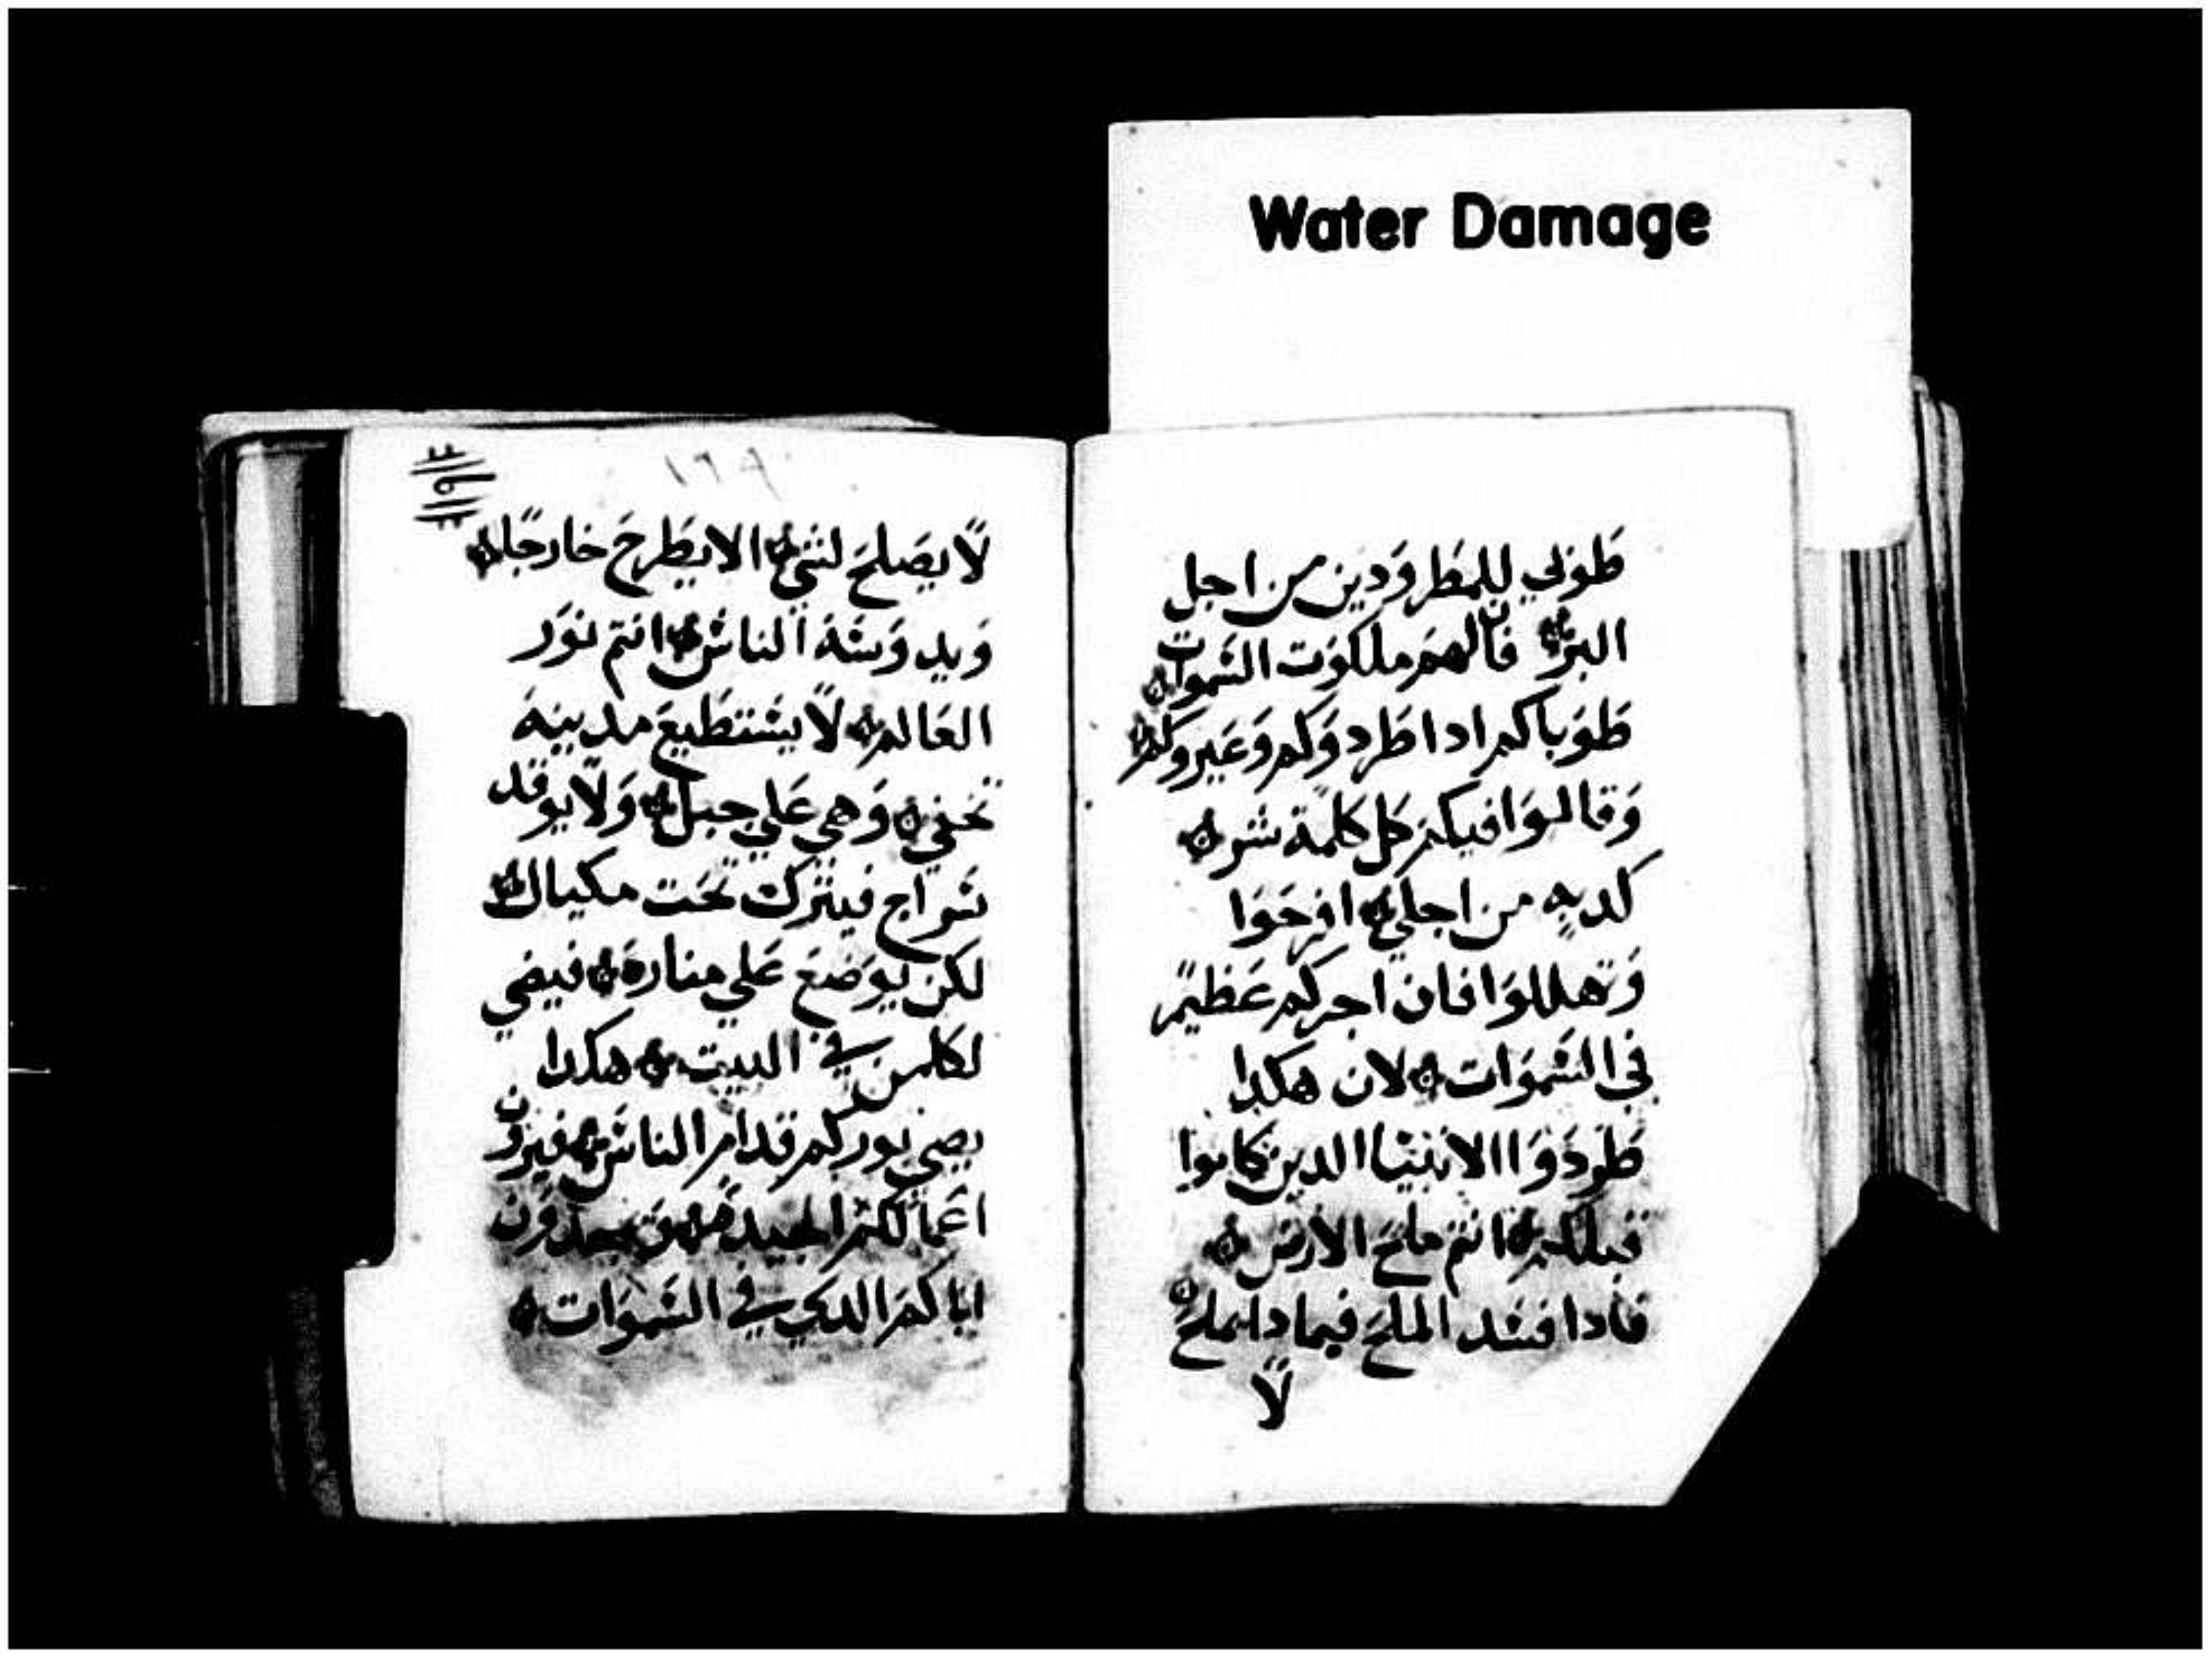 Water Damage
طوبي للمطرودين من اجل
البر فان لهم ملكوت السموات
طوباكم ادا طردوكم وعيروكم
وقالوا فيكم كل كلمة شر
كدبه من اجلي افرحوا
وتهللوا فان اجركم عظيم
في السموات لان هكدا
طردوا الانبيا الدين كانوا
قبلكم انتم ملح الارض
فادا فسد الملح فبمادا يملح
لا
١٦٩
لا يصلح لشي الا يطرح خارجا
ويدوسه الناس انتم نور
العالم لا يستطيع مدينه
تخفي وهي علي جبل ولا يوقد
سراج فيترك تحت مكيال
لكن يوضع علي مناره فيضي
لكلمن في البيت هكدا
يضي نوركم قدام الناس فيرون
اعمالكم
اباكم الدي في السموات